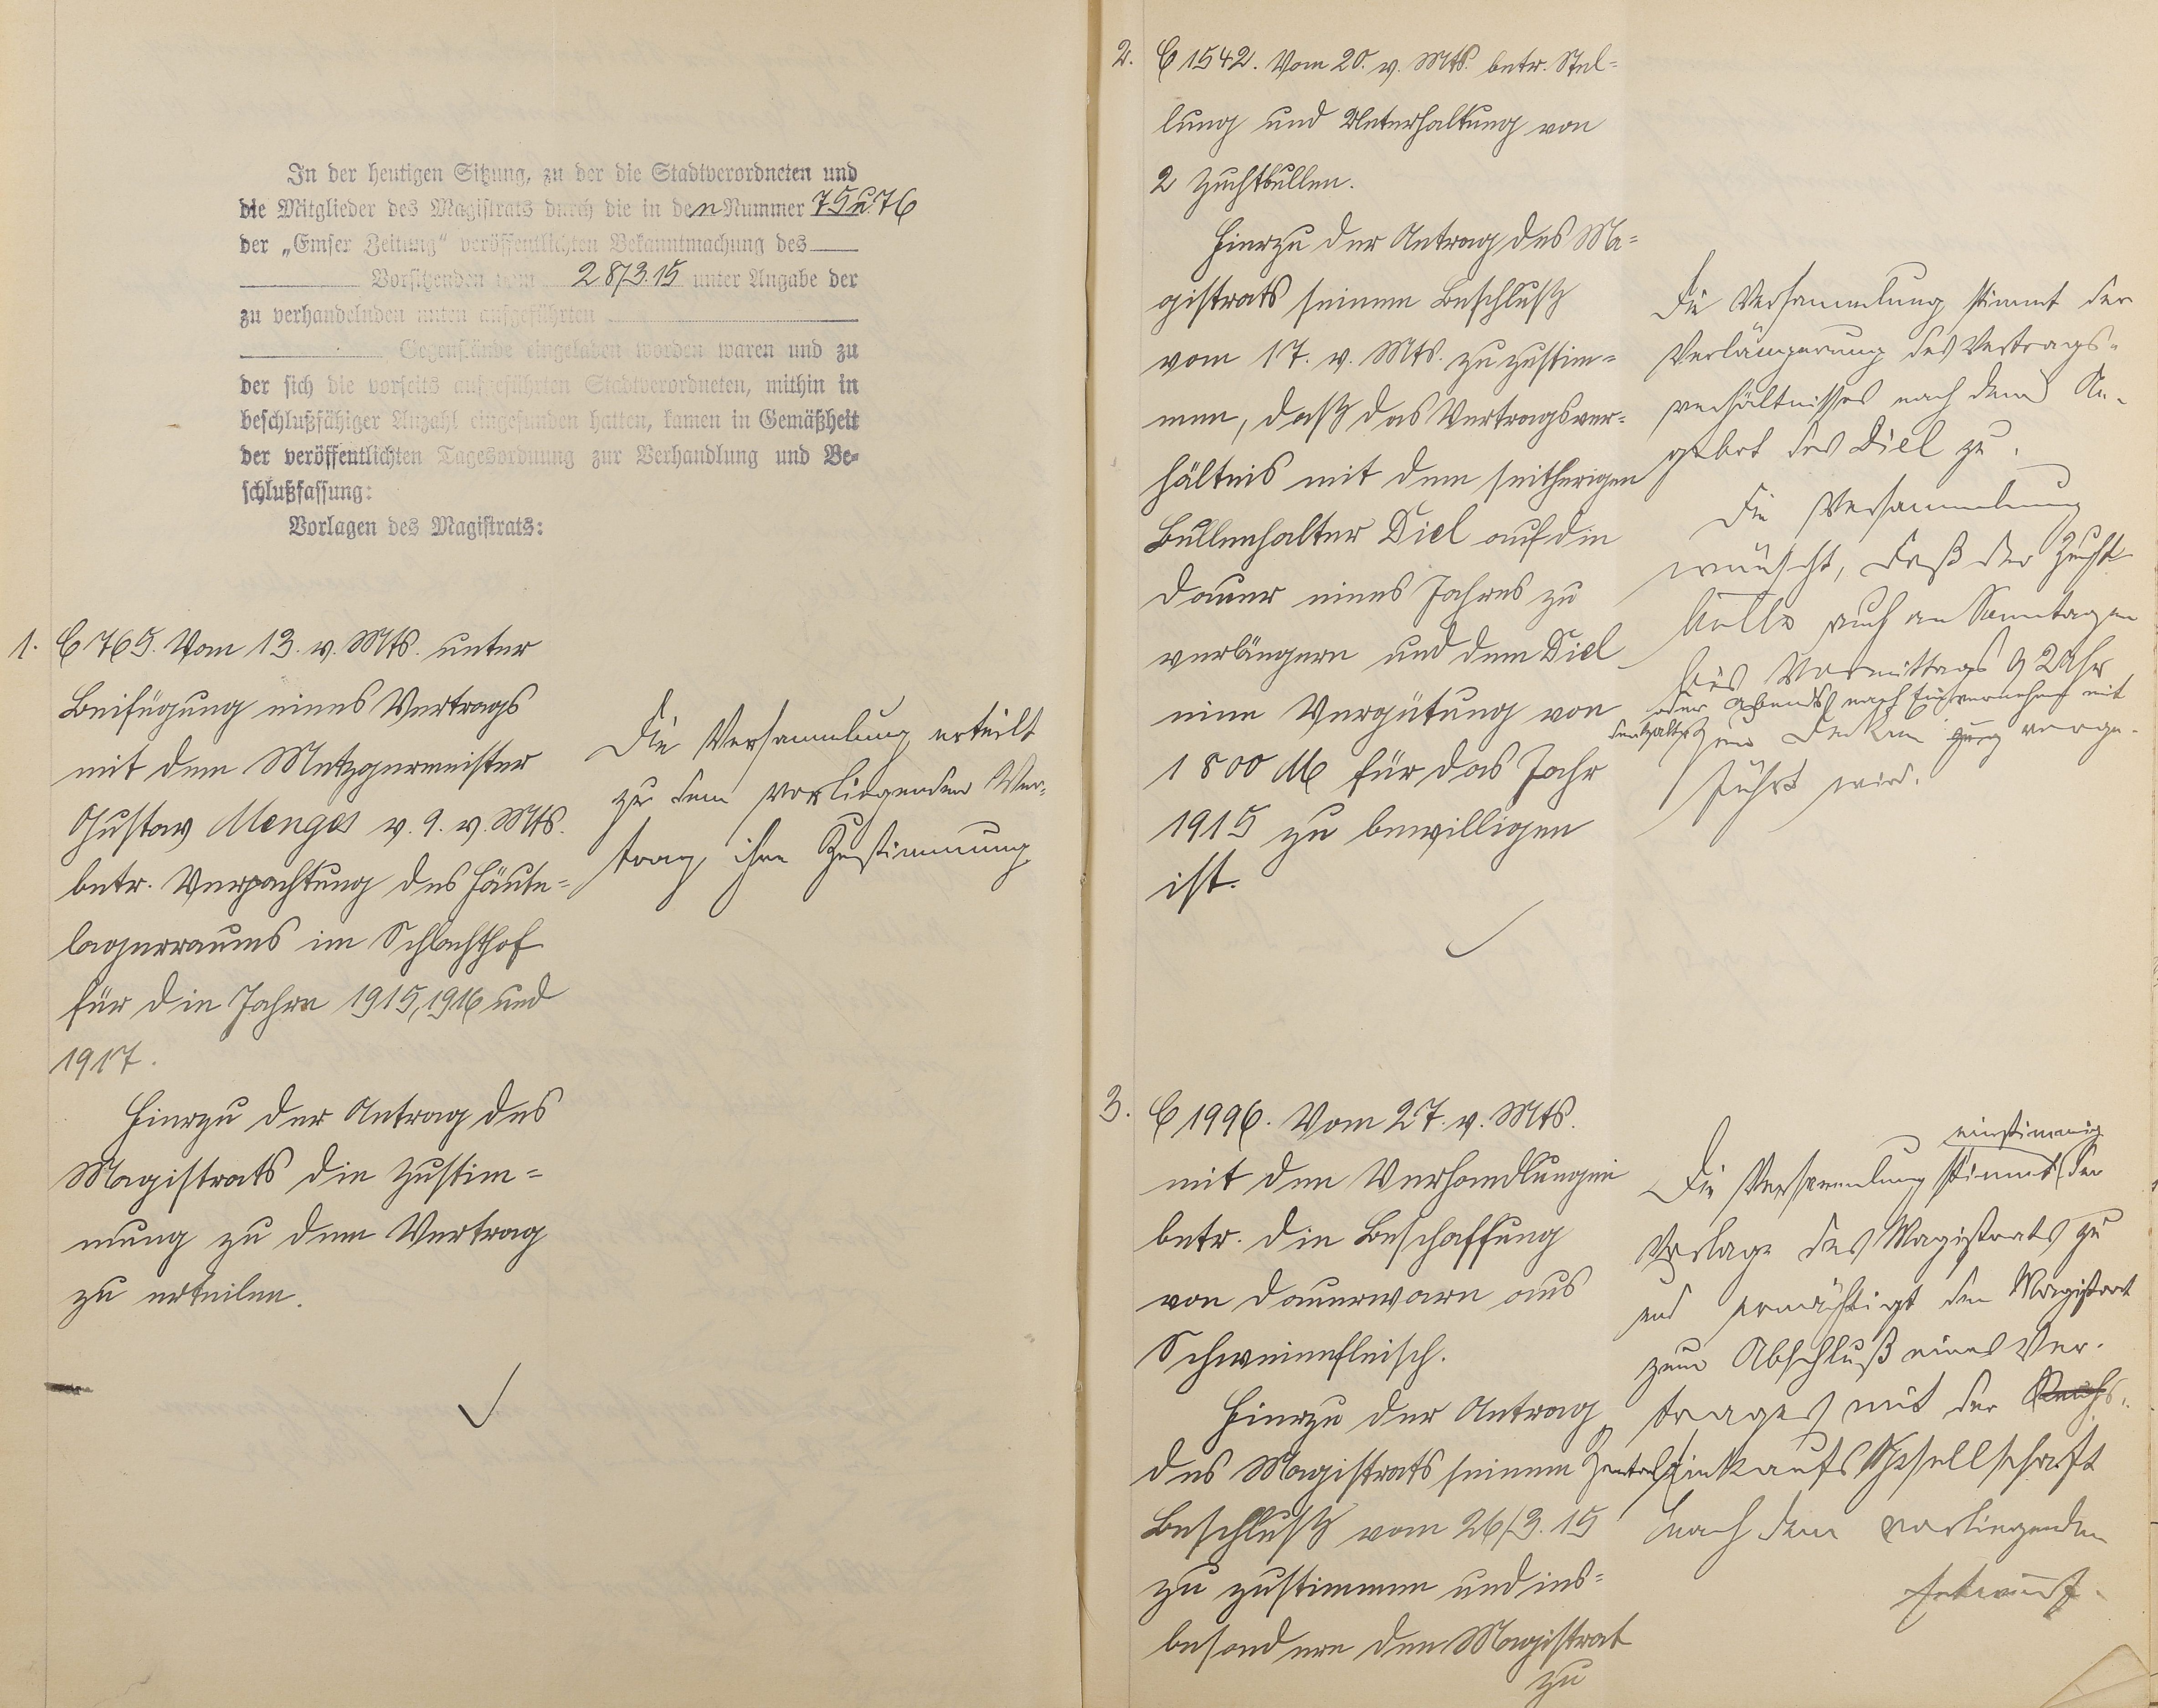 In der heutigen Sitzung, zu der die Stadtverordneten und
die Mitglieder des Magistrats durch die in den Nummer 75 u. 76
der „Emser Zeitung“ veröffentlichten Bekanntmachung des
Vorsitzenden vom 28/3.15 unter Angabe der
zu verhandelnden unten aufgeführten
Gegenstände eingeladen worden waren und zu
der sich die vorseits aufgeführten Stadtverordneten, mithin in
beschlußfähiger Anzahl eingefunden hatten, kamen in Gemäßheit
der veröffentlichten Tagesordnung zur Verhandlung und Be-
schlußfassung:
Vorlagen des Magistrats:
1. C 765. Vom 13. v. Mts. unter
Beifügung eines Vertrags
mit dem Metzgermeister
Gustav Menges v. 9. v. Mts.
betr. Verpachtung des Häute-
lagerraums im Schlachthof
für die Jahre 1915, 1916 und
1917.
Hierzu der Antrag des
Magistrats die Zustim-
mung zu dem Vertrag
zu erteilen.
Die Versammlung erteilt
zu dem vorliegenden Ver-
trag ihre Zustimmung
2. C 1542. Vom 20. v. Mts. betr. Stel-
lung und Unterhaltung von
2 Zuchtbullen.
Hierzu der Antrag des Ma-
gistrats seinem Beschluß
vom 17. v. Mts. zu zustim-
men, daß das Vertragsver-
hältnis mit dem seitherigen
Bullenhalter Diel auf die
Dauer eines Jahres zu
verlängern und dem Diel
eine Vergütung von
1800 M für das Jahr
1915 zu bewilligen
ist.
Die Versammlung stimmt der
Verlängerung des Vertrags-
verhältnisses nach dem An-
gebot des Diel zu.
Die Versammlung
wünscht, daß der Zucht
bulle auch an Sonntagen
bis Vormittags 9 Uhr
oder abends nach Einvernehmen mit
zum Decken vorge-
führt wird.
3. C 1996. Vom 27. v. Mts.
mit den Verhandlungen
betr. die Beschaffung
von Dauerware aus
Schweinefleisch.
Hierzu der Antrag
des Magistrats seinem
Beschluß vom 26/3. 15
zu zustimmen und ins-
besondere den Magistrat
zu
einstimmig
Die Versammlung stimmt der
Vorlage des Magistrats zu
und ermächtigt den Magistrat
zum Abschluß eines Ver-
trages mit der Reichs-
Zentral Einkaufs Gesellschaft
nach dem vorliegenden
Entwurf.